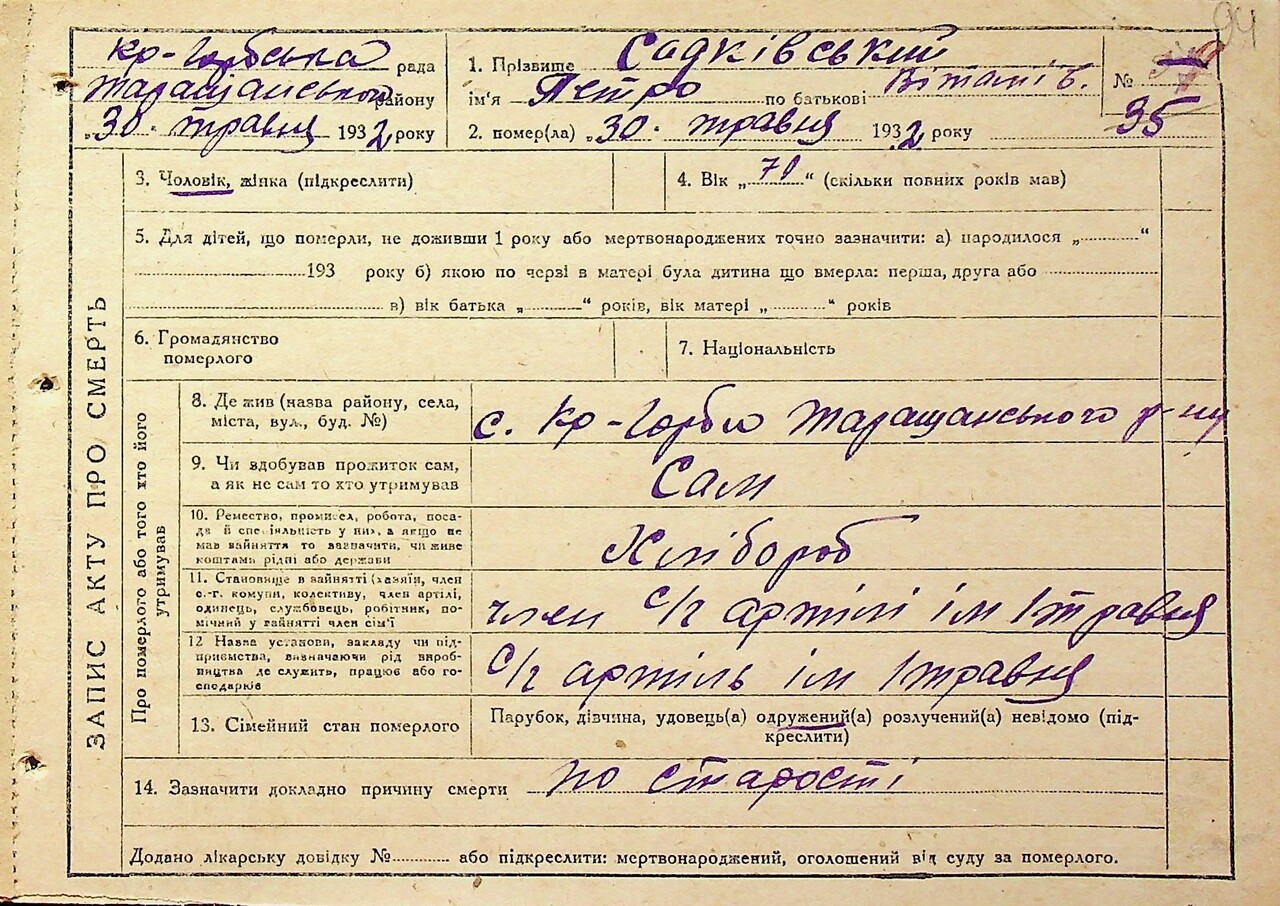 94
Кр-Горбська рада
Таращанського району
„30. травня 1932 року
1. Прізвище Садківський
ім'я Петро по батькові Віталів.
2. помер(ла) „30. травня 1932 року
№
35
ЗАПИС АКТУ ПРО СМЕРТЬ
3. Чоловік, жінка (підкреслити)
4. Вік „71“ (скільки повних років мав)
5. Для дітей, що померли, не доживши 1 року або мертвонароджених точно зазначити: а) народилося „ “
193 року б) якою по черзі в матері була дитина що вмерла: перша, друга або
в) вік батька „ “ років, вік матері „ “ років
6. Громадянство
померлого
7. Національність
Про померлого або того хто його
утримував
8. Де жив (назва району, села,
міста, вул., буд. №)
с. Кр-Горби Таращанського р-ну
9. Чи здобував прожиток сам,
а як не сам то хто утримував
Сам
10. Ремество, промисел, робота, поса-
да й спеціяльність у них, а якщо не
мав зайняття то зазначити, чи живе
коштами рідні або держави
Хлібороб
11. Становище в зайнятті (хазяїн, член
с.-г. комуни, колективу, член артілі,
одинець, службовець, робітник, по-
мічний у зайнятті член сім'ї
член с/г артілі ім 1 травня
12 Назва установи, закладу чи під-
приємства, визначаючи рід вироб-
ництва де служить, працює або го-
сподарює
с/г артіль ім 1 травня
13. Сімейний стан померлого
Парубок, дівчина, удовець(а) одружений(а) розлучений(а) невідомо (під-
креслити)
14. Зазначити докладно причину смерти по старості
Додано лікарську довідку № або підкреслити: мертвонароджений, оголошений від суду за померлого.